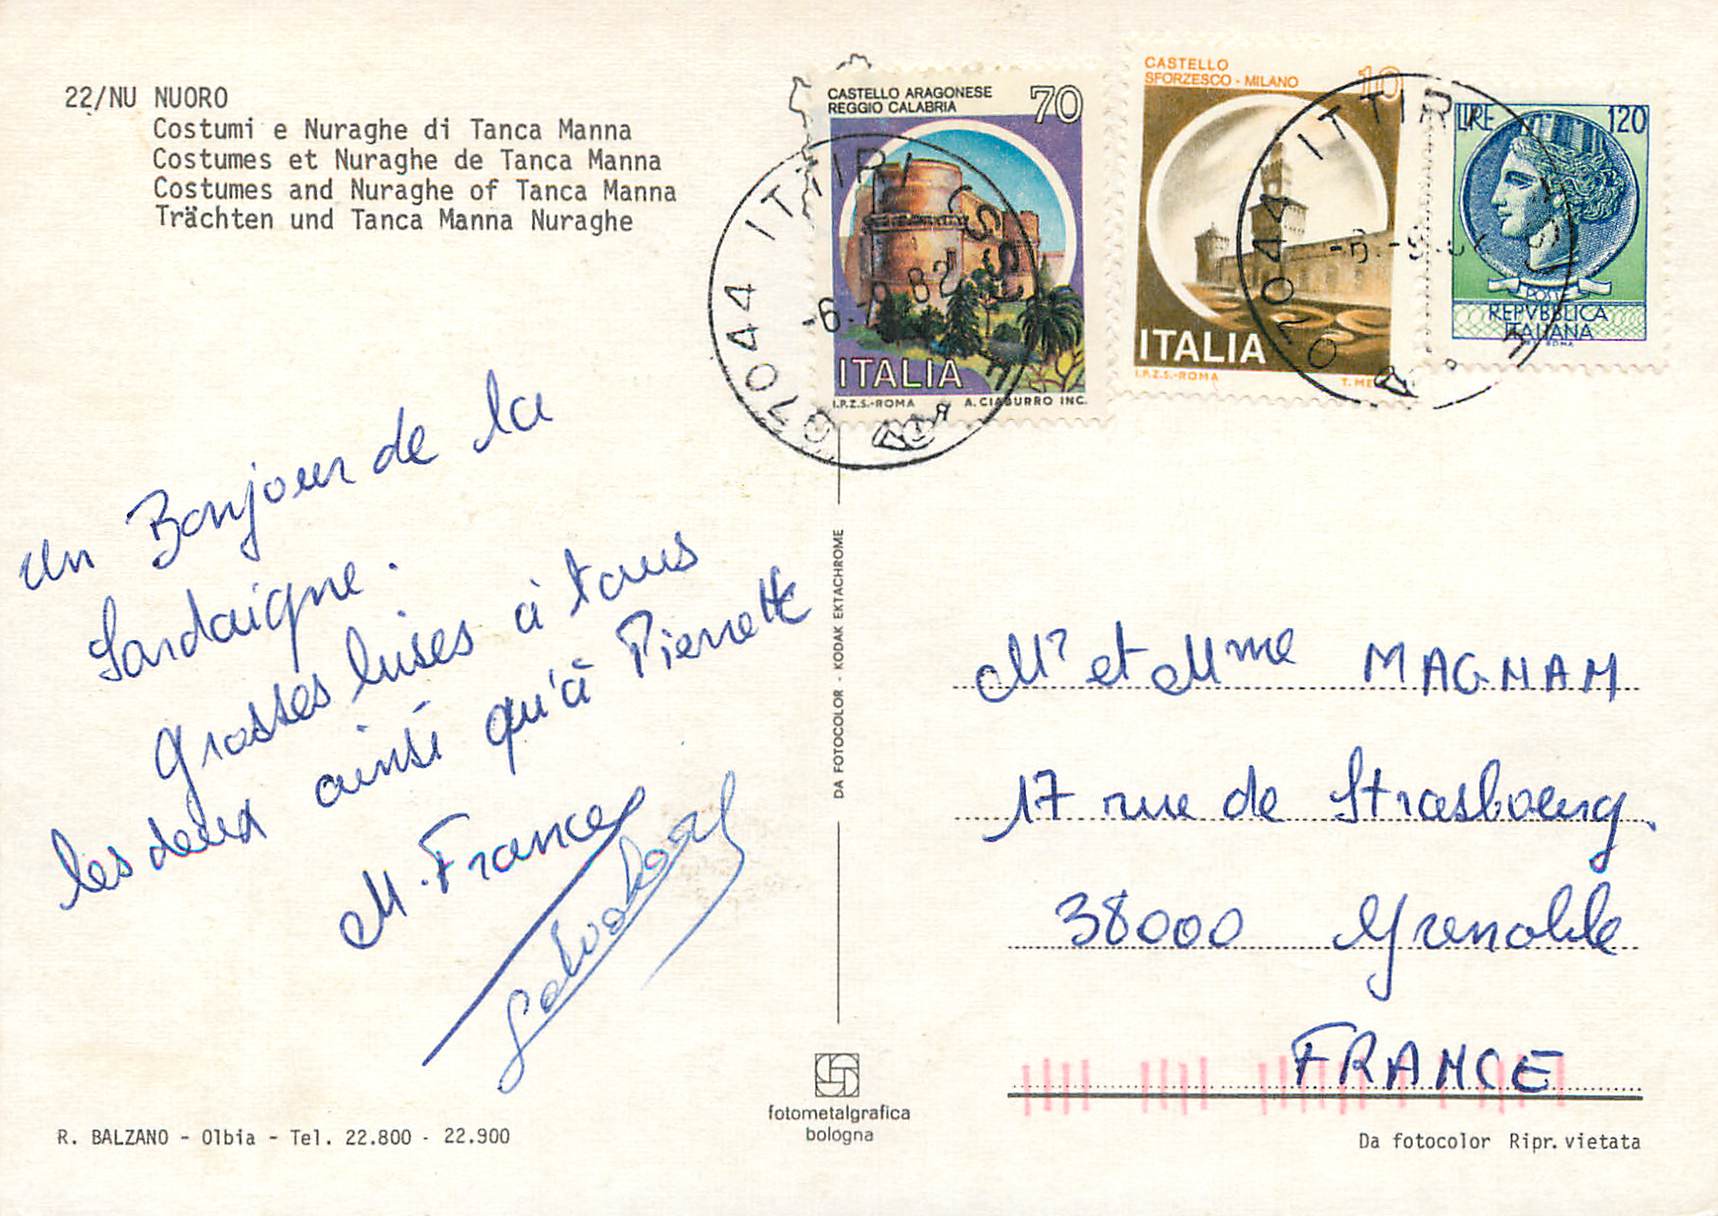 22/NU NUORO
Costumi e Nuraghe di Tanca Manna
Costumes et Nuraghe de Tanca Manna
Costumes and Nuraghe of Tanca Manna
Trächten und Tanca Manna Nuraghe
CASTELLO ARAGONESE
REGGIO CALABRIA
70
ITALIA
I.P.Z.S.-ROMA A. CIABURRO INC.
CASTELLO
SFORZESCO - MILANO
10
ITALIA
I.P.Z.S.-ROMA
LIRE 120
POSTE
REPVBBLICA
ITALIANA
07044 ITTIRI (SS)
-6.-9.82
07044 ITTIRI
un Bonjour de la
Sardaigne.
grosses bises à tous
les deux ainsi qu'à Pierrette
M. France
Salvatore
DA FOTOCOLOR - KODAK EKTACHROME
Mr et Mme MAGNAN
17 rue de Strasbourg.
38000 Grenoble
FRANCE
fotometalgrafica
bologna
R. BALZANO - Olbia - Tel. 22.800 - 22.900
Da fotocolor Ripr. vietata